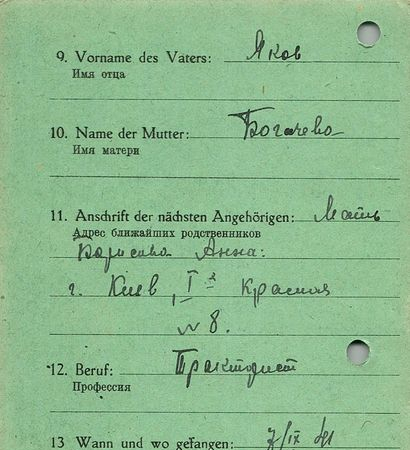 9. Vorname des Vaters: Яков
Имя отца
10. Name der Mutter: Богачева
Имя матери
11. Anschrift der nächsten Angehörigen: Мать
Адрес ближайших родственников
Борисова Анна:
г. Киев, I я Красная
№ 8.
12. Beruf: Тракторист
Профессия
13 Wann und wo gefangen: 7/IX 41